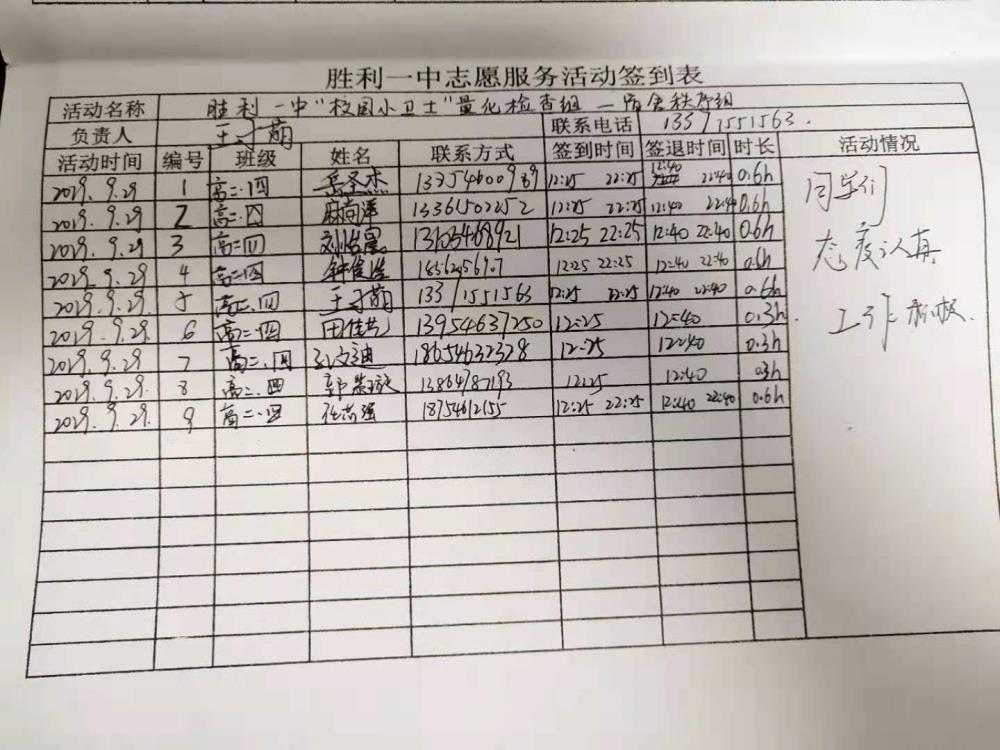 胜利一中志愿服务活动签到表
活动名称 胜利一中"校园小卫士"量化检查组—宿舍秩序组
负责人 联系电话 13371551563.
活动时间 编号 班级 姓名 联系方式 签到时间 签退时间 时长 活动情况
2019.9.29 1 高二.四 岳圣杰 12:25 22:25 12:40 22:40 0.6h
2019.9.29 2 高二.四 13361502252 12:25 22:25 12:40 22:40 0.6h
2019.9.29 3 高二四 13105468921 12:25 22:25 12:40 22:40 0.6h
2019.9.29 4 高二四 12:25 22:25 12:40 22:40 0.6h
2019.9.29. 5 高二.四 13371551563 12:25 22:25 12:40 22:40 0.6h
2019.9.29. 6 高二.四 13954637250 12:25 12:40 0.3h
2019.9.29. 7 高二.四 18654632328 12:25 12:40 0.3h
2019.9.29. 8 高二.四 12:25 12:40 0.3h
2019.9.29. 9 高二.四 18754612155 12:25 22:25 12:40 22:40 0.6h
同学们
态度认真
工作积极.